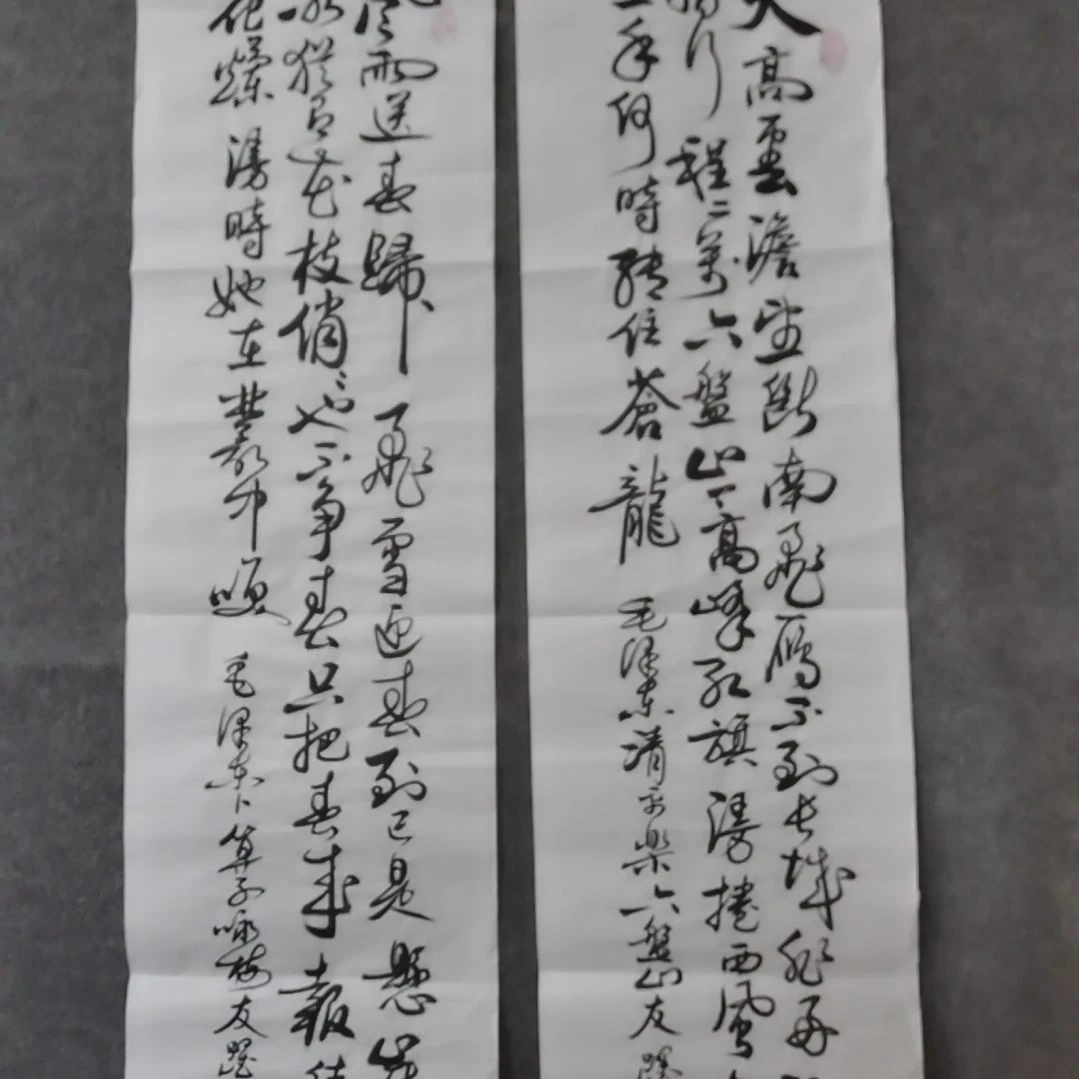 天高雲澹望斷南飛雁不到長城非好
指行程二萬六盤山上高峰紅旗漫捲西風
手何時縛住蒼龍 毛澤東清平樂六盤山友
風雨送春歸飛雪迎春到已是懸崖
冰猶有花枝俏俏也不爭春只把春來報
花爛漫時她在叢中咲 毛澤東卜算子咏梅友